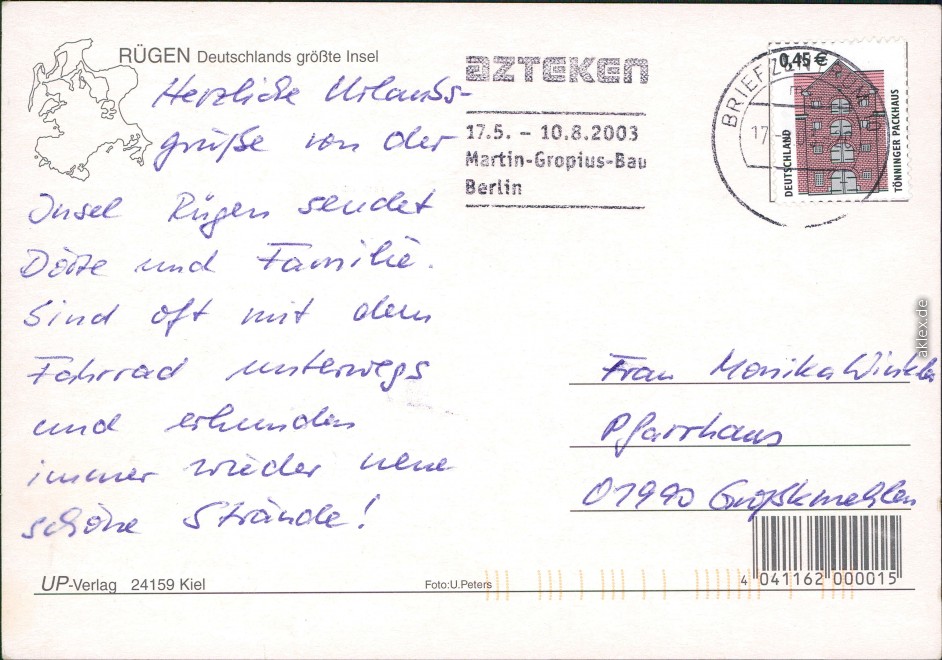 RÜGEN Deutschlands größte Insel
Herzliche Urlaubs-
grüße von der
Insel Rügen sendet
Dörte und Familie.
Sind oft mit dem
Fahrrad unterwegs
und erkunden
immer wieder neue
schöne Strände!
AZTEKEN
17.5. - 10.8.2003
Martin-Gropius-Bau
Berlin
BRIEFZENTRUM
17.-
0,45 €
DEUTSCHLAND
TÖNNINGER PACKHAUS
Frau Monika Winkler
Pfarrhaus
01990 Großkmehlen
UP-Verlag 24159 Kiel
Foto:U.Peters
4 041162 000015
aklex.de